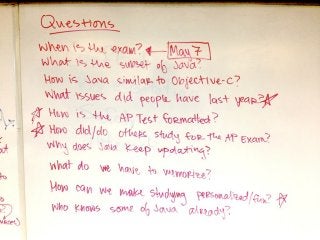 Questions
When is the exam? ← May 7
What is the subset of Java?
How is Java similar to Objective-C?
What issues did people have last year?
How is the AP Test formatted?
How did/do others study for the AP Exam?
Why does Java keep updating?
What do we have to memorize?
How can we make studying personalized/fun?
Who knows some of Java already?